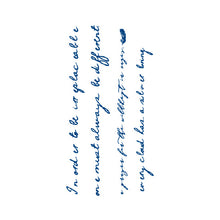 In order to be irreplaceable
one must always be different
a prayer for the
every cloud has a silver lining